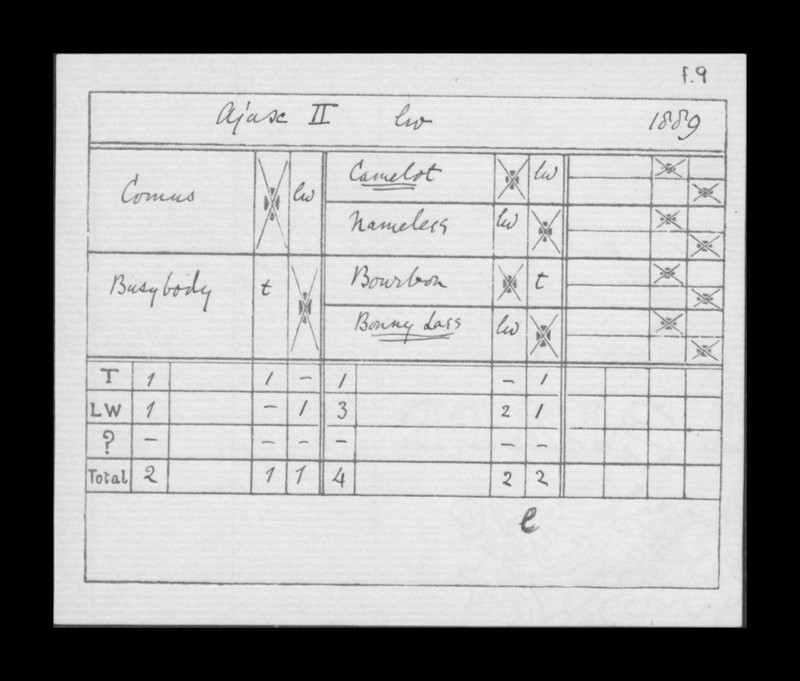 f.9
Ajax II lw 1889
Comus lw Camelot lw
Nameless lw
Busybody t Bourbon t
Bonny Lass lw
T 1 1 – 1 – 1
LW 1 – 1 3 2 1
? – – – – – –
Total 2 1 1 4 2 2
e